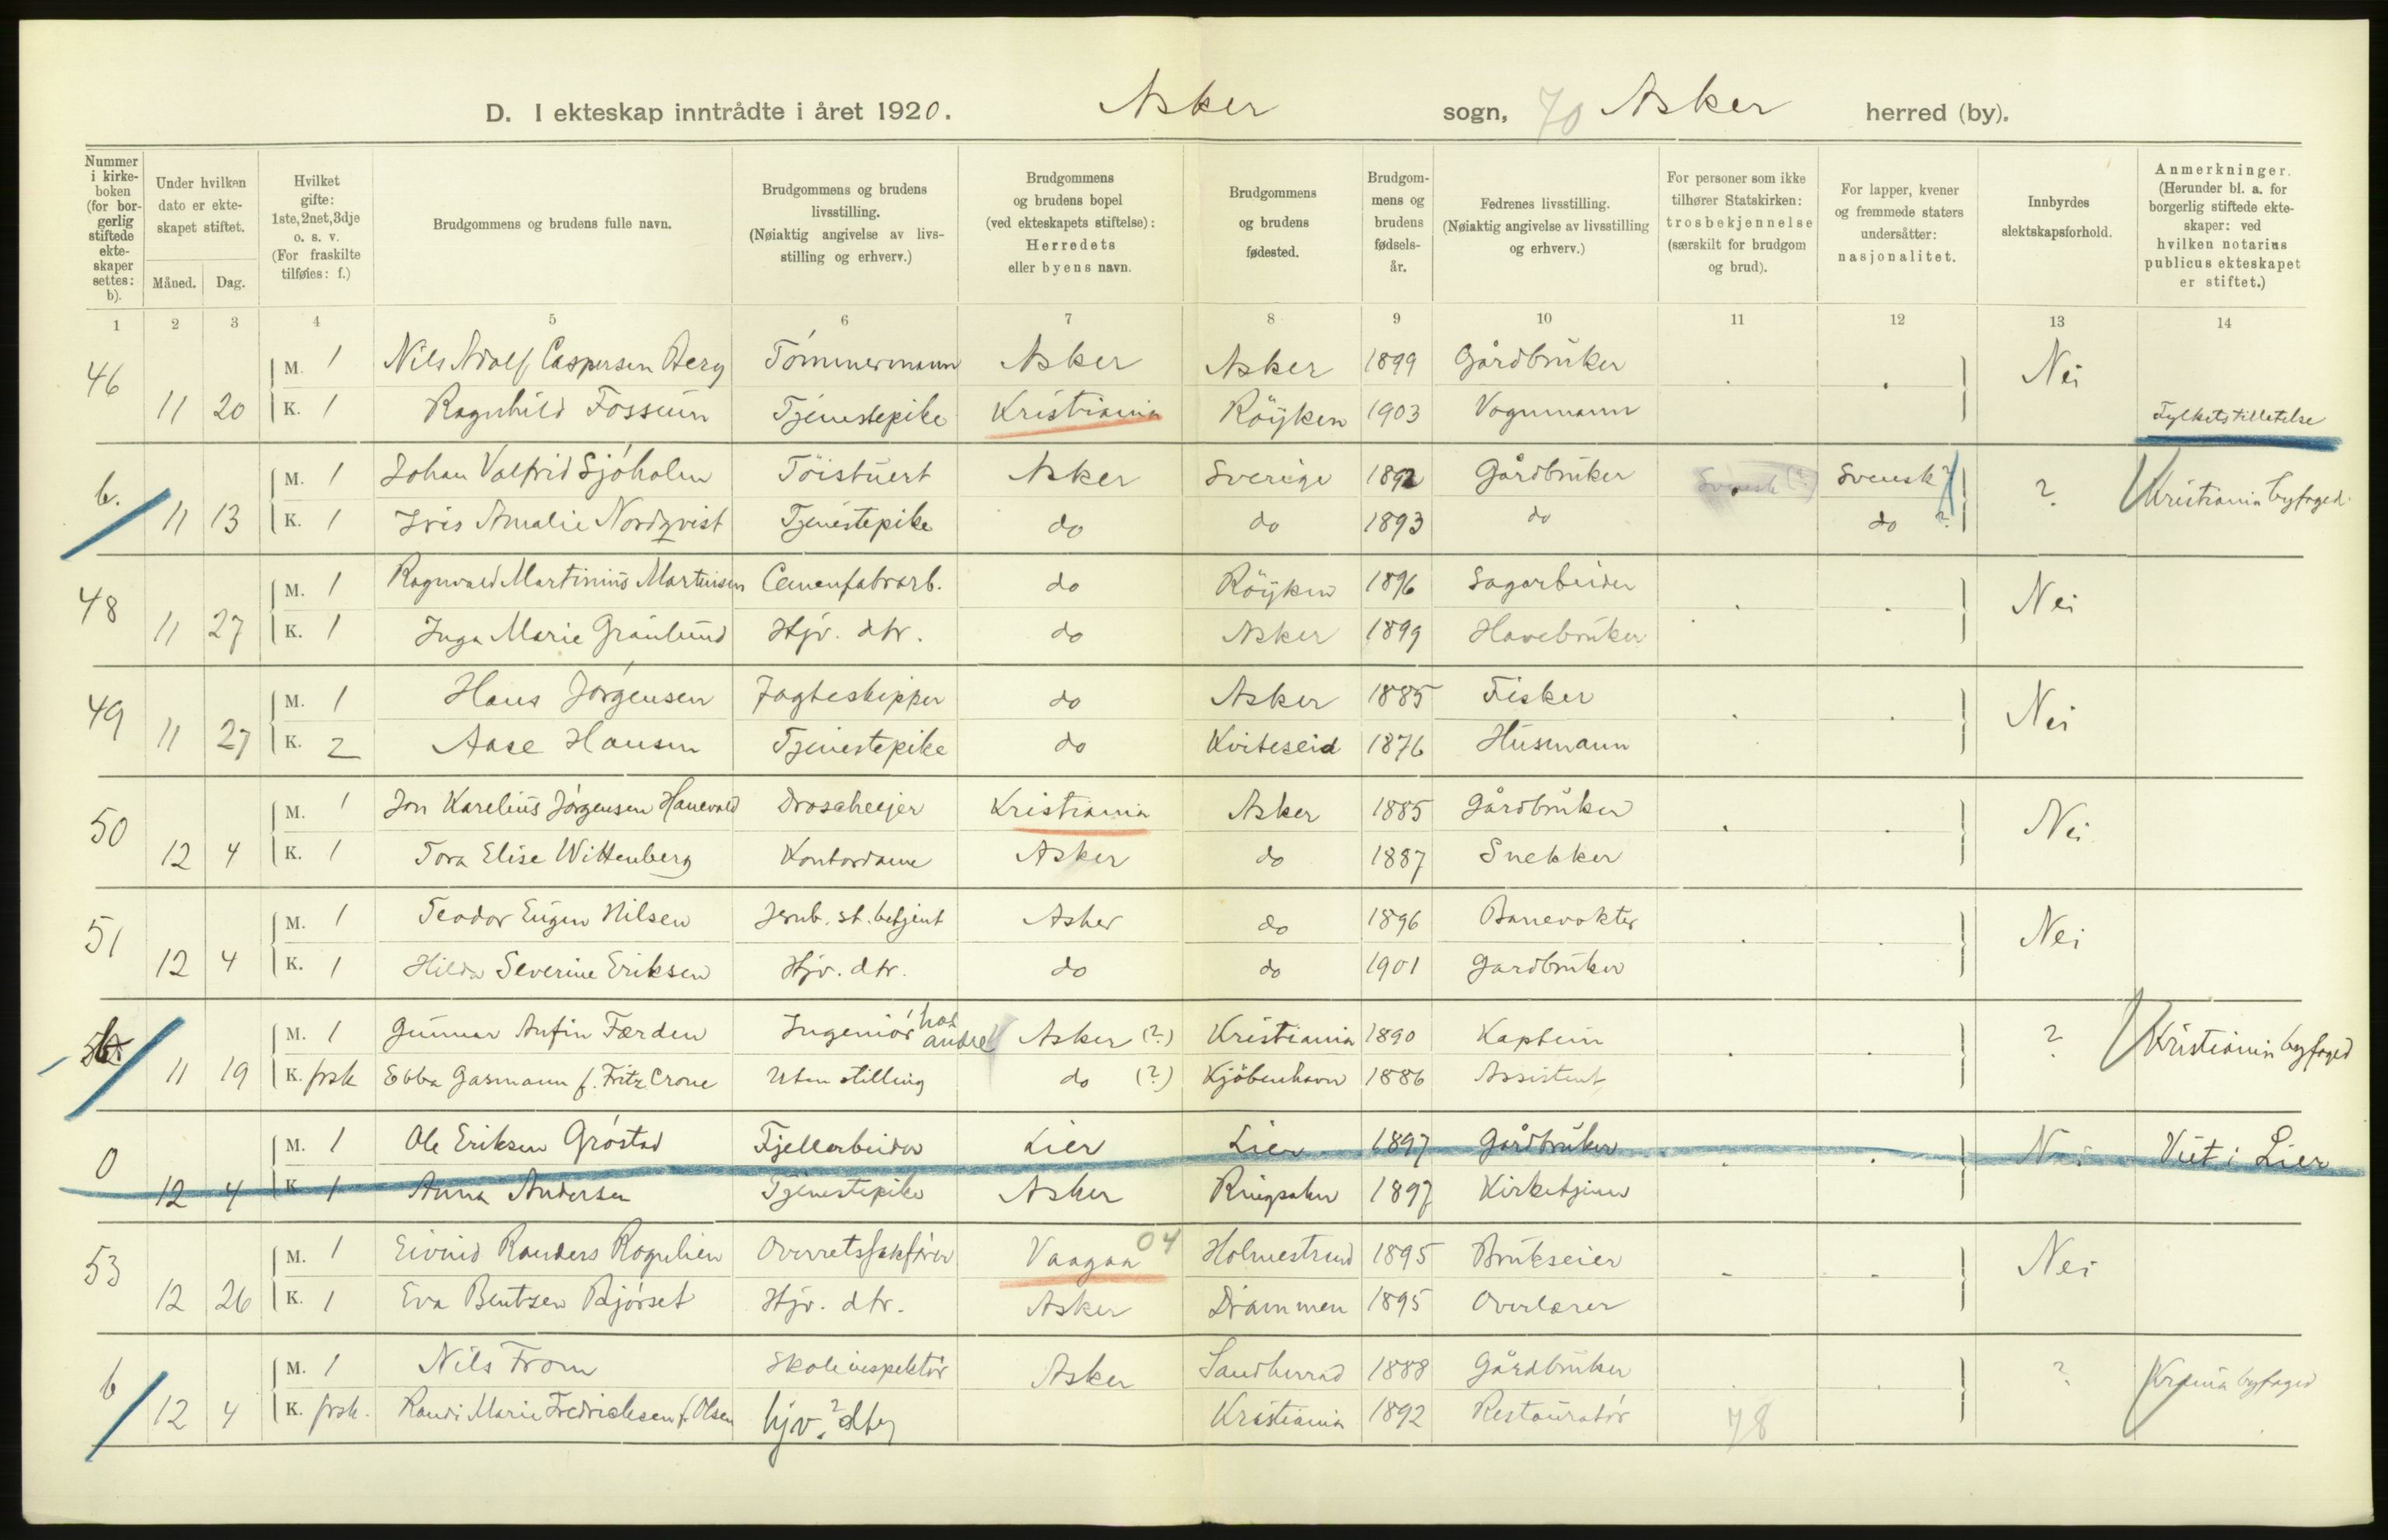 D. I ekteskap inntrådte i året 1920. Asker sogn, 70 Asker herred (by).
Nummer i kirke-boken (for bor-gerlig stiftede ekte-skaper settes: b). Under hvilken dato er ekte-skapet stiftet. Måned. Dag. Hvilket gifte: 1ste, 2net, 3dje o. s. v. (For fraskilte tilføies: f.) Brudgommens og brudens fulle navn. Brudgommens og brudens livsstilling. (Nøiaktig angivelse av livs-stilling og erhverv.) Brudgommens og brudens bopel (ved ekteskapets stiftelse): Herredets eller byens navn. Brudgommens og brudens fødested. Brudgom-mens og brudens fødsels-år. Fedrenes livsstilling. (Nøiaktig angivelse av livsstilling og erhverv.) For personer som ikke tilhører Statskirken: trosbekjennelse (særskilt for brudgom og brud). For lapper, kvener og fremmede staters undersåtter: nasjonalitet. Innbyrdes slektskapsforhold. Anmerkninger. (Herunder bl. a. for borgerlig stiftede ekte-skaper: ved hvilken notarius publicus ekteskapet er stiftet.)
1 2 3 4 5 6 7 8 9 10 11 12 13 14
46 M. 1 Nils Adolf Caspersen Berg Tømmermann Asker Asker 1899 Gårdbruker . . Nei
11 20 K. 1 Ragnhild Fossum Tjenestepike Kristiania Röyken 1903 Vognmann Fylketstilletelse
b. M. 1 Johan Valfrid Sjöholm Asker Sverige 1892 Gårdbruker Svensk (?) Svensk ? ? Kristiania byfoged
11 13 K. 1 Iris Amalie Nordqvist Tjenestepike do do 1893 do do ?
48 M. 1 Ragnvald Martinius Martinsen Cemenfabrarb. do Röyken 1896 Sagarbeider . . Nei
11 27 K. 1 Inga Marie Grönlund Hjv. dtr. do Asker 1899 Havebruker
49 M. 1 Hans Jørgensen Jagteskipper do Asker 1885 Fisker . . Nei
11 27 K. 2 Aase Hansen Tjenestepike do Kviteseid 1876 Husmann
50 M. 1 Jon Karelius Jørgensen Hanevold Droscheejer Kristiania Asker 1885 Gårdbruker . . Nei
12 4 K. 1 Tora Elise Wittenberg Kontordame Asker do 1887 Snekker
51 M. 1 Teodor Eugen Nilsen Jernb. st. betjent Asker do 1896 Banevokter . . Nei
12 4 K. 1 Hilda Severine Eriksen Hjv. dtr. do do 1901 Gardbruker
b. M. 1 Gunnar Anfin Færden Ingeniør hos andre Asker (?) Kristiania 1890 Kaptein . . ? Kristiania byfoged
11 19 K. frsk Ebba Gasmann f. Fritz Crone Uten stilling do (?) Kjöbenhavn 1886 Assistent
0 M. 1 Ole Eriksen Grøstad Fjellarbeider Lier Lier 1897 Gårdbruker . . Nei Viet i Lier
12 4 K. 1 Anna Andersen Tjenestepike Asker Ringsaker 1897 Kirketjener
53 M. 1 Eivind Randers Rognlien Overretssakfører Vaagaa 04 Holmestrand 1895 Brukseier - - Nei
12 26 K. 1 Eva Bentsen Bjørset Hjv. dtr. Asker Drammen 1895 Overlærer
b M. 1 Nils From Skoleinspektør Asker Sandherred 1888 Gårdbruker . . ? Krania byfoged
12 4 K. frsk. Randi Marie Fredricksen f. Olsen hjv. ? dtr Kristiania 1892 Restauratør 78